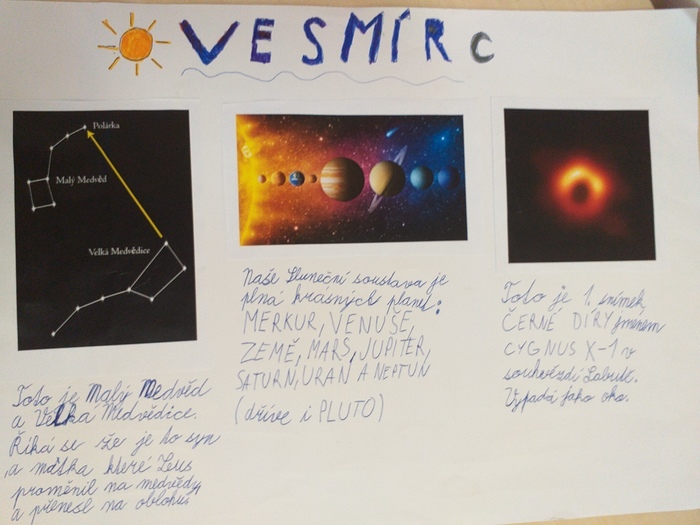 VESMÍR
Polárka
Malý Medvěd
Velká Medvědice
Toto je Malý Medvěd
a Velká Medvědice.
Říká se že je to syn
a mátka které Zeus
proměnil na medvědy,
a přenesl na oblohu.
Naše Sluneční soustava je
plná krásných planet:
MERKUR, VENUŠE,
ZEMĚ, MARS, JUPITER,
SATURN, URAN A NEPTUN
(dříve i PLUTO)
Toto je 1. snímek
ČERNÉ DÍRY jménem
CYGNUS X-1 v
souhvězdí Labutě.
Vypadá jako oko.